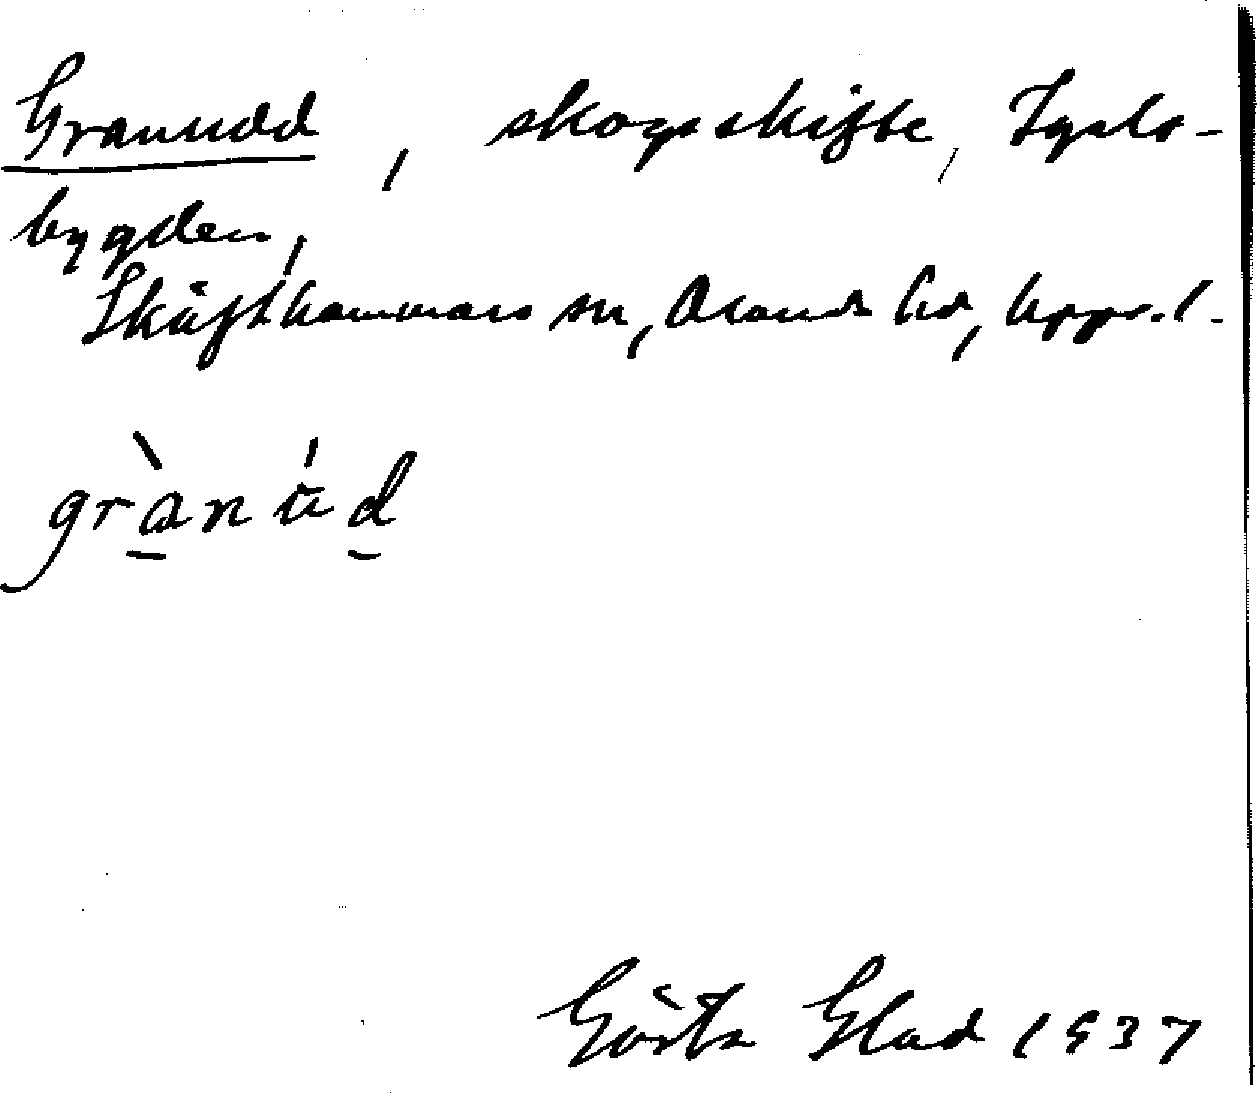 Granudd, skogsskifte, Tyslo-
bygden,
Skäfthammars sn, Olands hd, Upps. l.
grànúd
Gösta Glad 1937